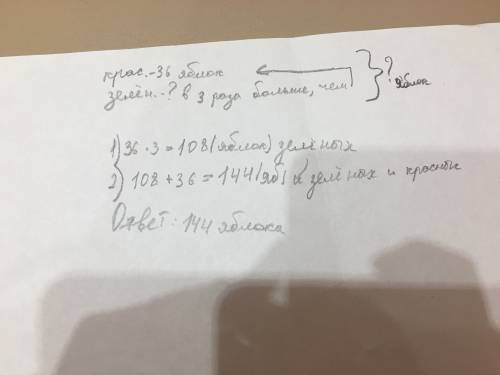 крас.-36 яблок
зелён.-? в 3 раза больше, чем } ? яблок
1) 36 · 3 = 108 (яблок) зелёных
2) 108 + 36 = 144 (яб) зелёных и красных
Ответ: 144 яблока